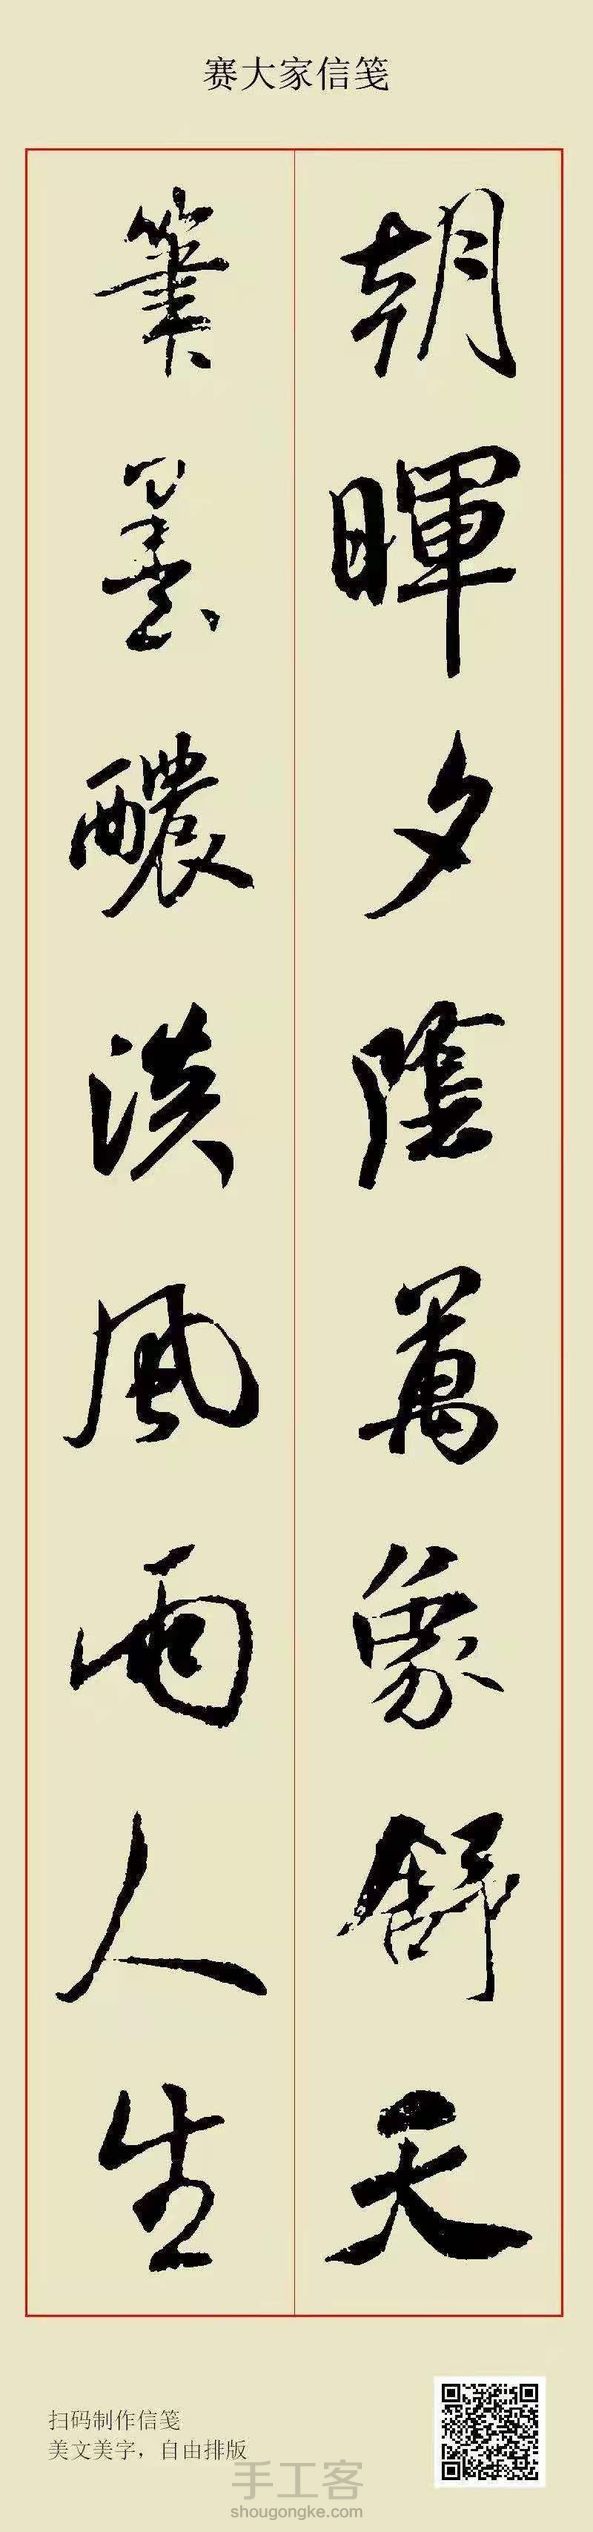 赛大家信笺
朝暉夕陰萬象舒天
筆墨醲淡風雨人生
扫码制作信笺
美文美字，自由排版
手工客
shougongke.com